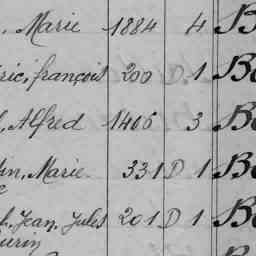 , Marie 1884 4 B
ric, françois 200 D. 1 Bo
, Alfred 1406 . 3 Bo
in, Marie 331 D 1 Bo
e
h, Jean, Jules 201 D 1 Bo
urin